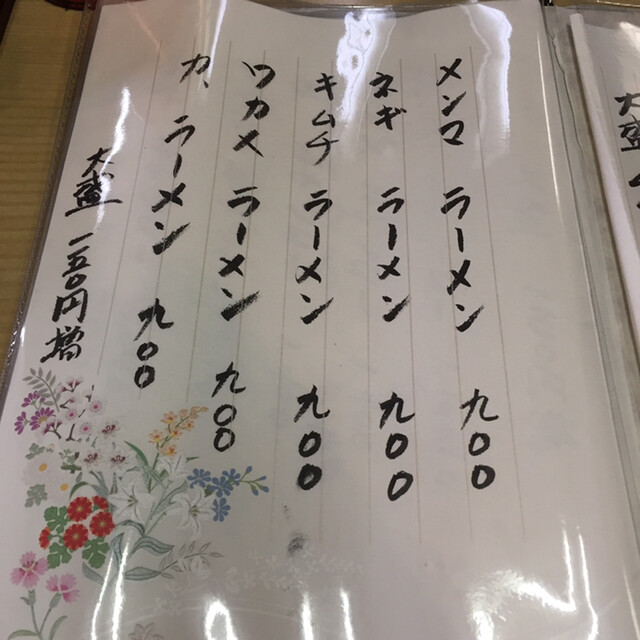 メンマ ラーメン 九〇〇
ネギ ラーメン 九〇〇
キムチ ラーメン 九〇〇
ワカメ ラーメン 九〇〇
カ、ラーメン 九〇〇
大盛 一五〇円増
大盛